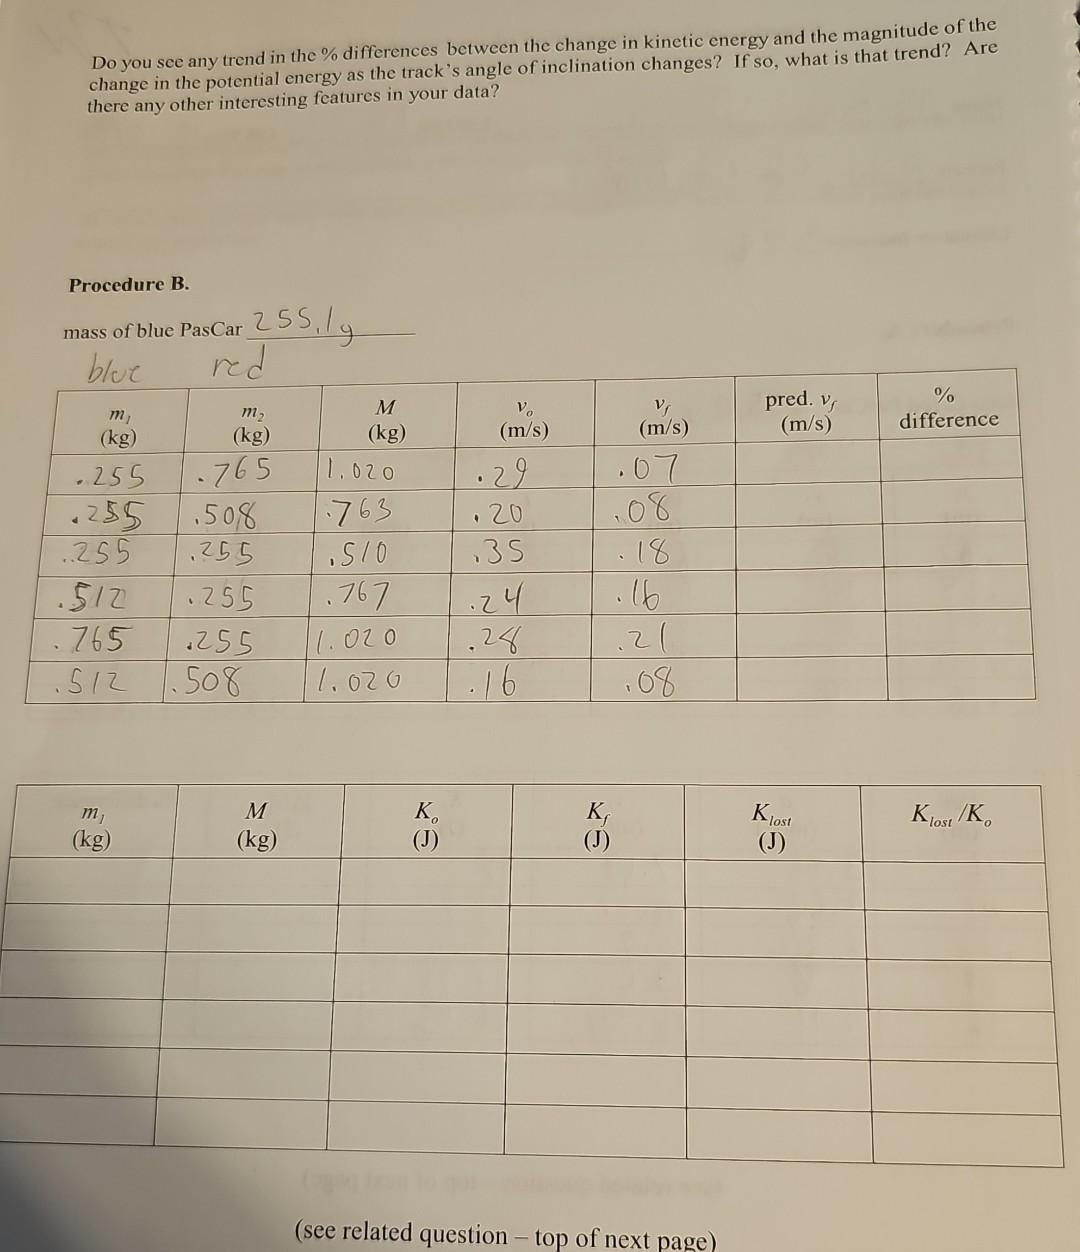 Do you see any trend in the % differences between the change in kinetic energy and the magnitude of the
change in the potential energy as the track's angle of inclination changes? If so, what is that trend? Are
there any other interesting features in your data?
Procedure B.
mass of blue PasCar 255.1g
blue red
m₁ (kg) m₂ (kg) M (kg) vₒ (m/s) v_f (m/s) pred. v_f (m/s) % difference
.255 .765 1.020 .29 .07
.255 .508 .763 .20 .08
.255 .255 .510 .35 .18
.512 .255 .767 .24 .16
.765 .255 1.020 .28 .21
.512 .508 1.020 .16 .08
m₁ (kg) M (kg) Kₒ (J) K_f (J) K_lost (J) K_lost /Kₒ
(see related question – top of next page)